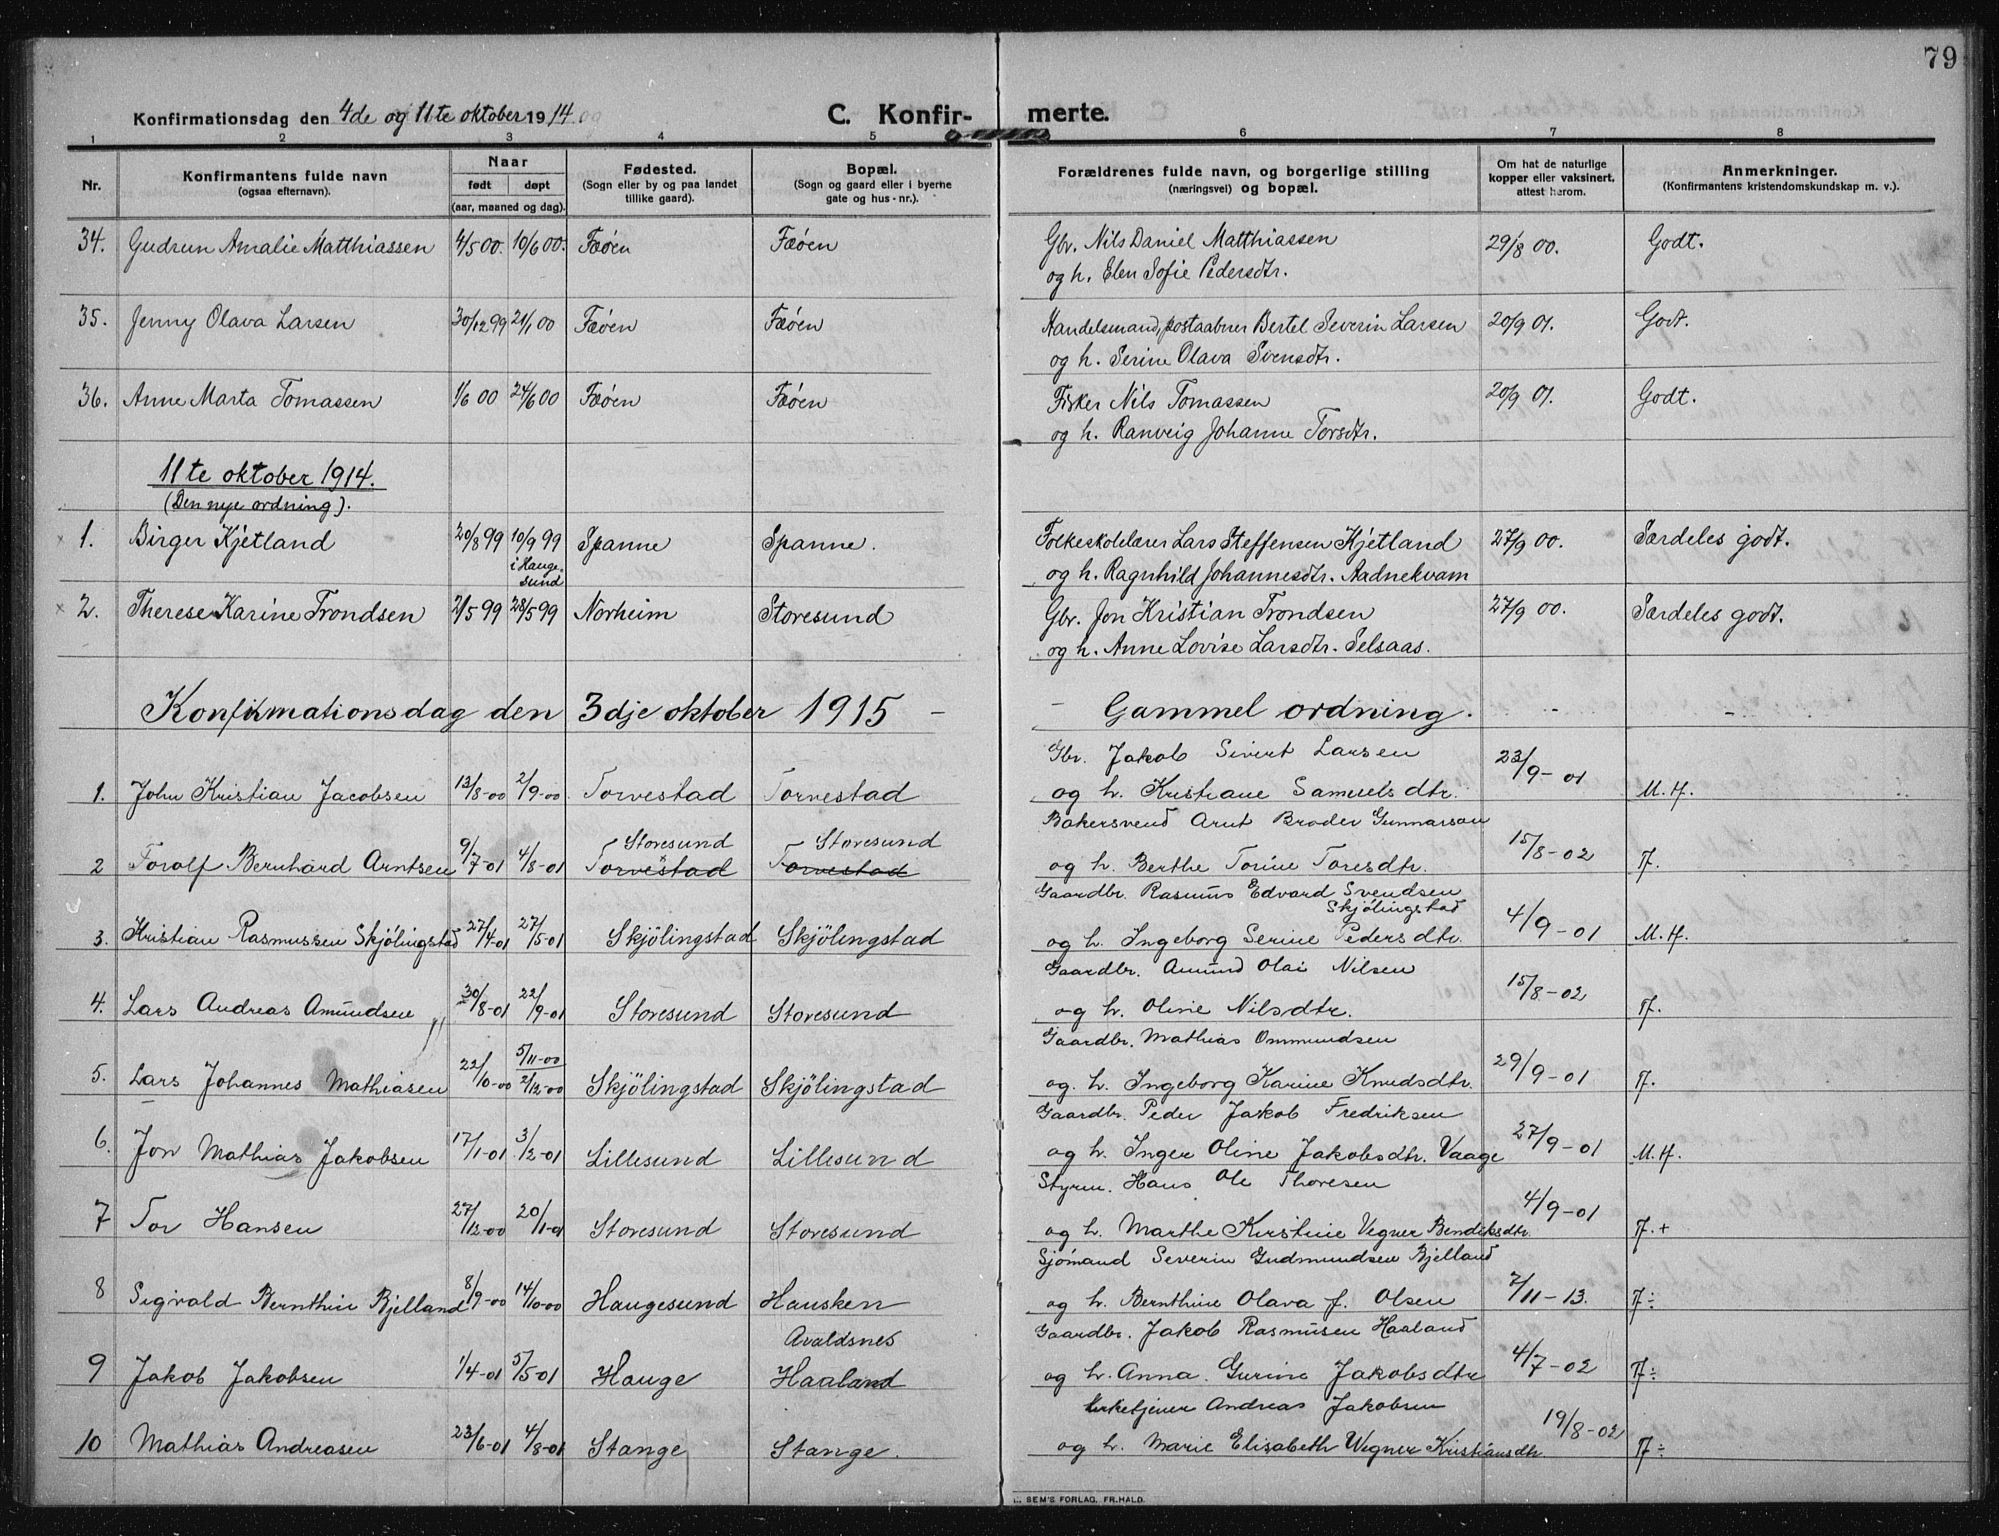 79
Konfirmationsdag den 4de og 11te oktober 1914
C. Konfirmerte.
1 2 3 4 5 6 7 8
Nr. Konfirmantens fulde navn (ogsaa efternavn). Naar født døpt (aar, maaned og dag). Fødested. (Sogn eller by og paa landet tillike gaard). Bopæl. (Sogn og gaard eller i byerne gate og hus-nr.). Forældrenes fulde navn, og borgerlige stilling (næringsvei) og bopæl. Om hat de naturlige kopper eller vaksinert, attest herom. Anmerkninger. (Konfirmantens kristendomskundskap m. v.).
34. Gudrun Amalie Matthiassen 4/5 00. 10/6 00. Fæøen Fæøen Gbr. Nils Daniel Matthiassen 29/8 00. Godt.
og h. Elen Sofie Pedersdtr.
35. Jenny Olava Larsen 30/12 99 21/1 00 Fæøen Fæøen Handelsmand, postaabner Bertel Severin Larsen 20/9 01. Godt.
og h. Serine Olava Svensdtr.
36. Anne Marta Tomassen 1/6 00 24/6 00 Fæøen Fæøen Fisker Nils Tomassen 20/9 01. Godt.
og h. Ranveig Johanne Torsdtr.
11te oktober 1914.
(Den nye ordning).
x 1. Birger Kjetland 20/8 99 10/9 99 Spanne Spanne. Folkeskolelærer Lars Steffensen Kjetland 27/9 00. Særdeles godt.
i Haugesund og h. Ragnhild Johannesdtr. Aadnekvam
x 2. Therese Karine Trondsen 2/5 99 28/5 99 Norheim Storesund Gbr. Jon Kristian Trondsen 27/9 00. Særdeles godt.
og h. Anne Lovise Larsdtr. Selsaas.
Konfirmationsdag den 3dje oktober 1915 - - Gammel ordning.
Gbr. Jakob Sivert Larsen
1. John Kristian Jacobsen 13/8-00 2/9-00 Torvestad Torvestad og h. Kristiane Samuelsdtr. 23/9-01 M.H.
Storesund Storesund Bakersvend Arnt Broder Gunnarson
2 Torolf Bernhard Arntsen 9/7-01 4/8-01 Torvestad Torvestad og h. Berthe Torine Toresdtr. 15/8-02 T.
Gaardbr. Rasmus Edvard Svendsen
Skjölingstad
3. Kristian Rasmussen Skjölingstad 27/4-01 27/5-01 Skjölingstad Skjölingstad og h. Ingeborg Serine Pedersdtr. 4/9-01 M.H.
Gaardbr. Amund Olai Nilsen
4. Lars Andreas Amundsen 30/8-01 22/9-01 Storesund Storesund og h. Oline Nilsdtr. 15/8-02 T.
Gaardbr. Mathias Ommundsen
5. Lars Johannes Mathiasen 22/10-00 5/11-00 2/12-00 Skjölingstad Skjölingstad og h. Ingeborg Karine Knudsdtr. 29/9-01 T.
Gaardbr. Peder Jakob Fredriksen
6. Jon Mathias Jakobsen 17/1-01 3/2-01 Lillesund Lillesund og h. Inger Oline Jakobsdtr. Vaage 27/9-01 M.H.
Styrm. Hans Ole Thoresen
7 Tor Hansen 27/12-00 20/1-01 Storesund Storesund og h. Marthe Kirstine Vegner Bendiksdtr. 4/9-01 T.+
Sjómand Severin Gudmundsen Bjelland
8 Sigvald Bernthin Bjelland 8/9-00 14/10-00 Haugesund Hausken og h. Bernthine Olava f. Olsen 7/11-13. T÷
Avaldsnes Gaardbr. Jakob Rasmusen Haaland
9 Jakob Jakobsen 1/4-01 5/5-01 Hauge Haaland og h. Anna Gurine Jakobsdtr 4/7-02 T÷
Kirketjener Andreas Jakobsen
10 Mathias Andreasen 23/6-01 4/8-01 Stange Stange. og h. Marie Elisabeth Wegner Kristiansdtr. 19/8-02 T÷
SEM'S FORLAG, FR.HALD.